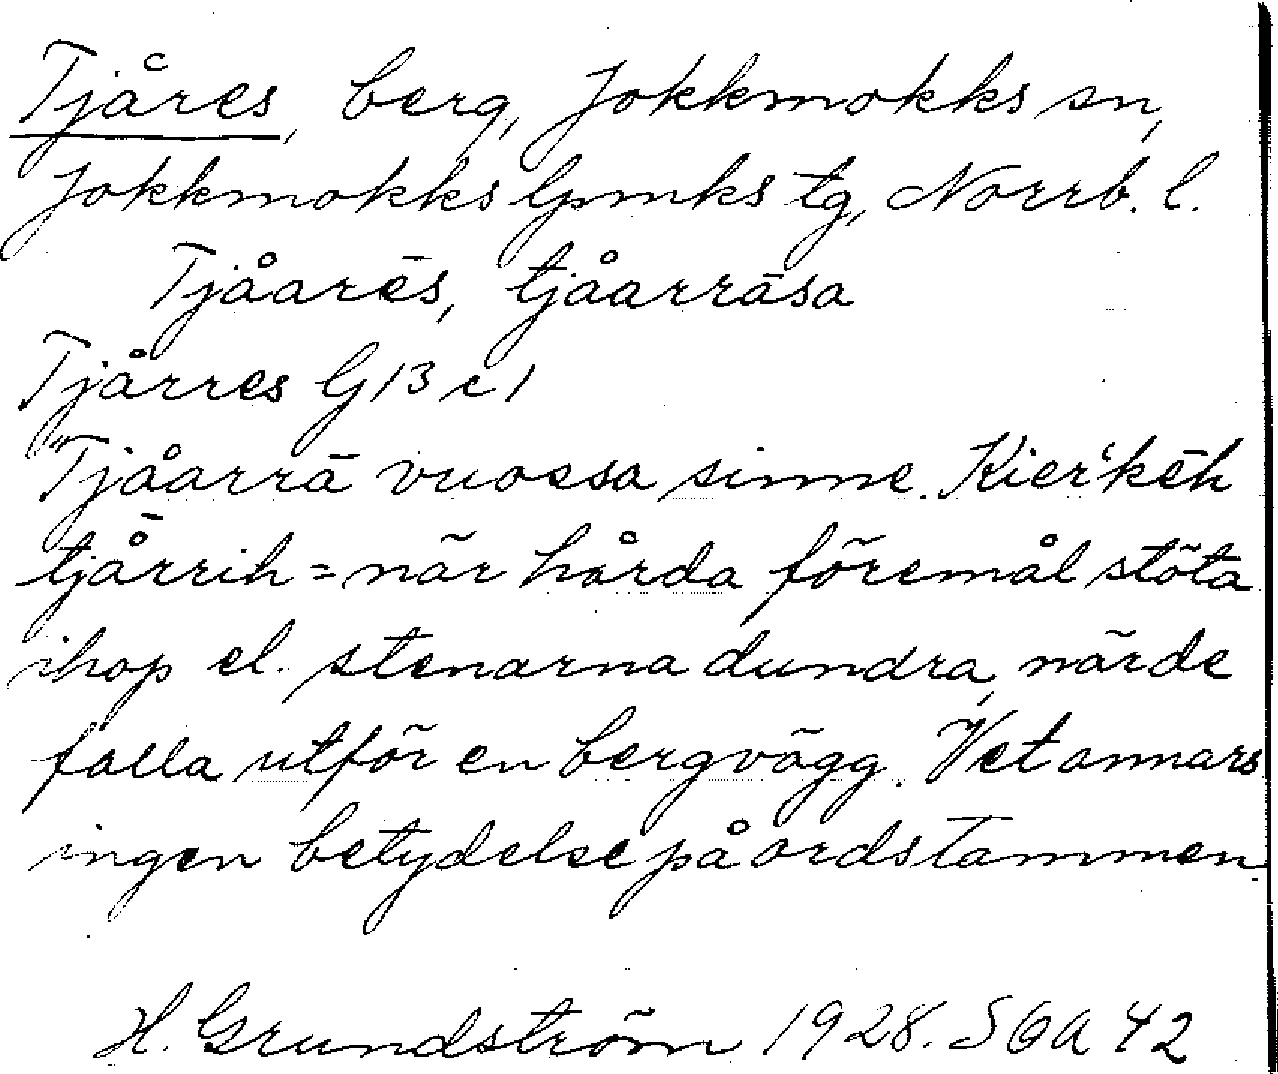 Tjåres, berg, Jokkmokks sn,
Jokkmokks lpmks tg, Norrb. l.
Tjåarēs, tjåarrāsa
Tjårres G 13 c 1
"Tjåarrā vuoessa sinne. Kier'kēh
tjå̄rrih = när hårda föremål stöta
ihop el. stenarna dundra, när de
falla utför en bergvägg. Vet annars
ingen betydelse på ordstammen.
H. Grundström 1928. SOA 42